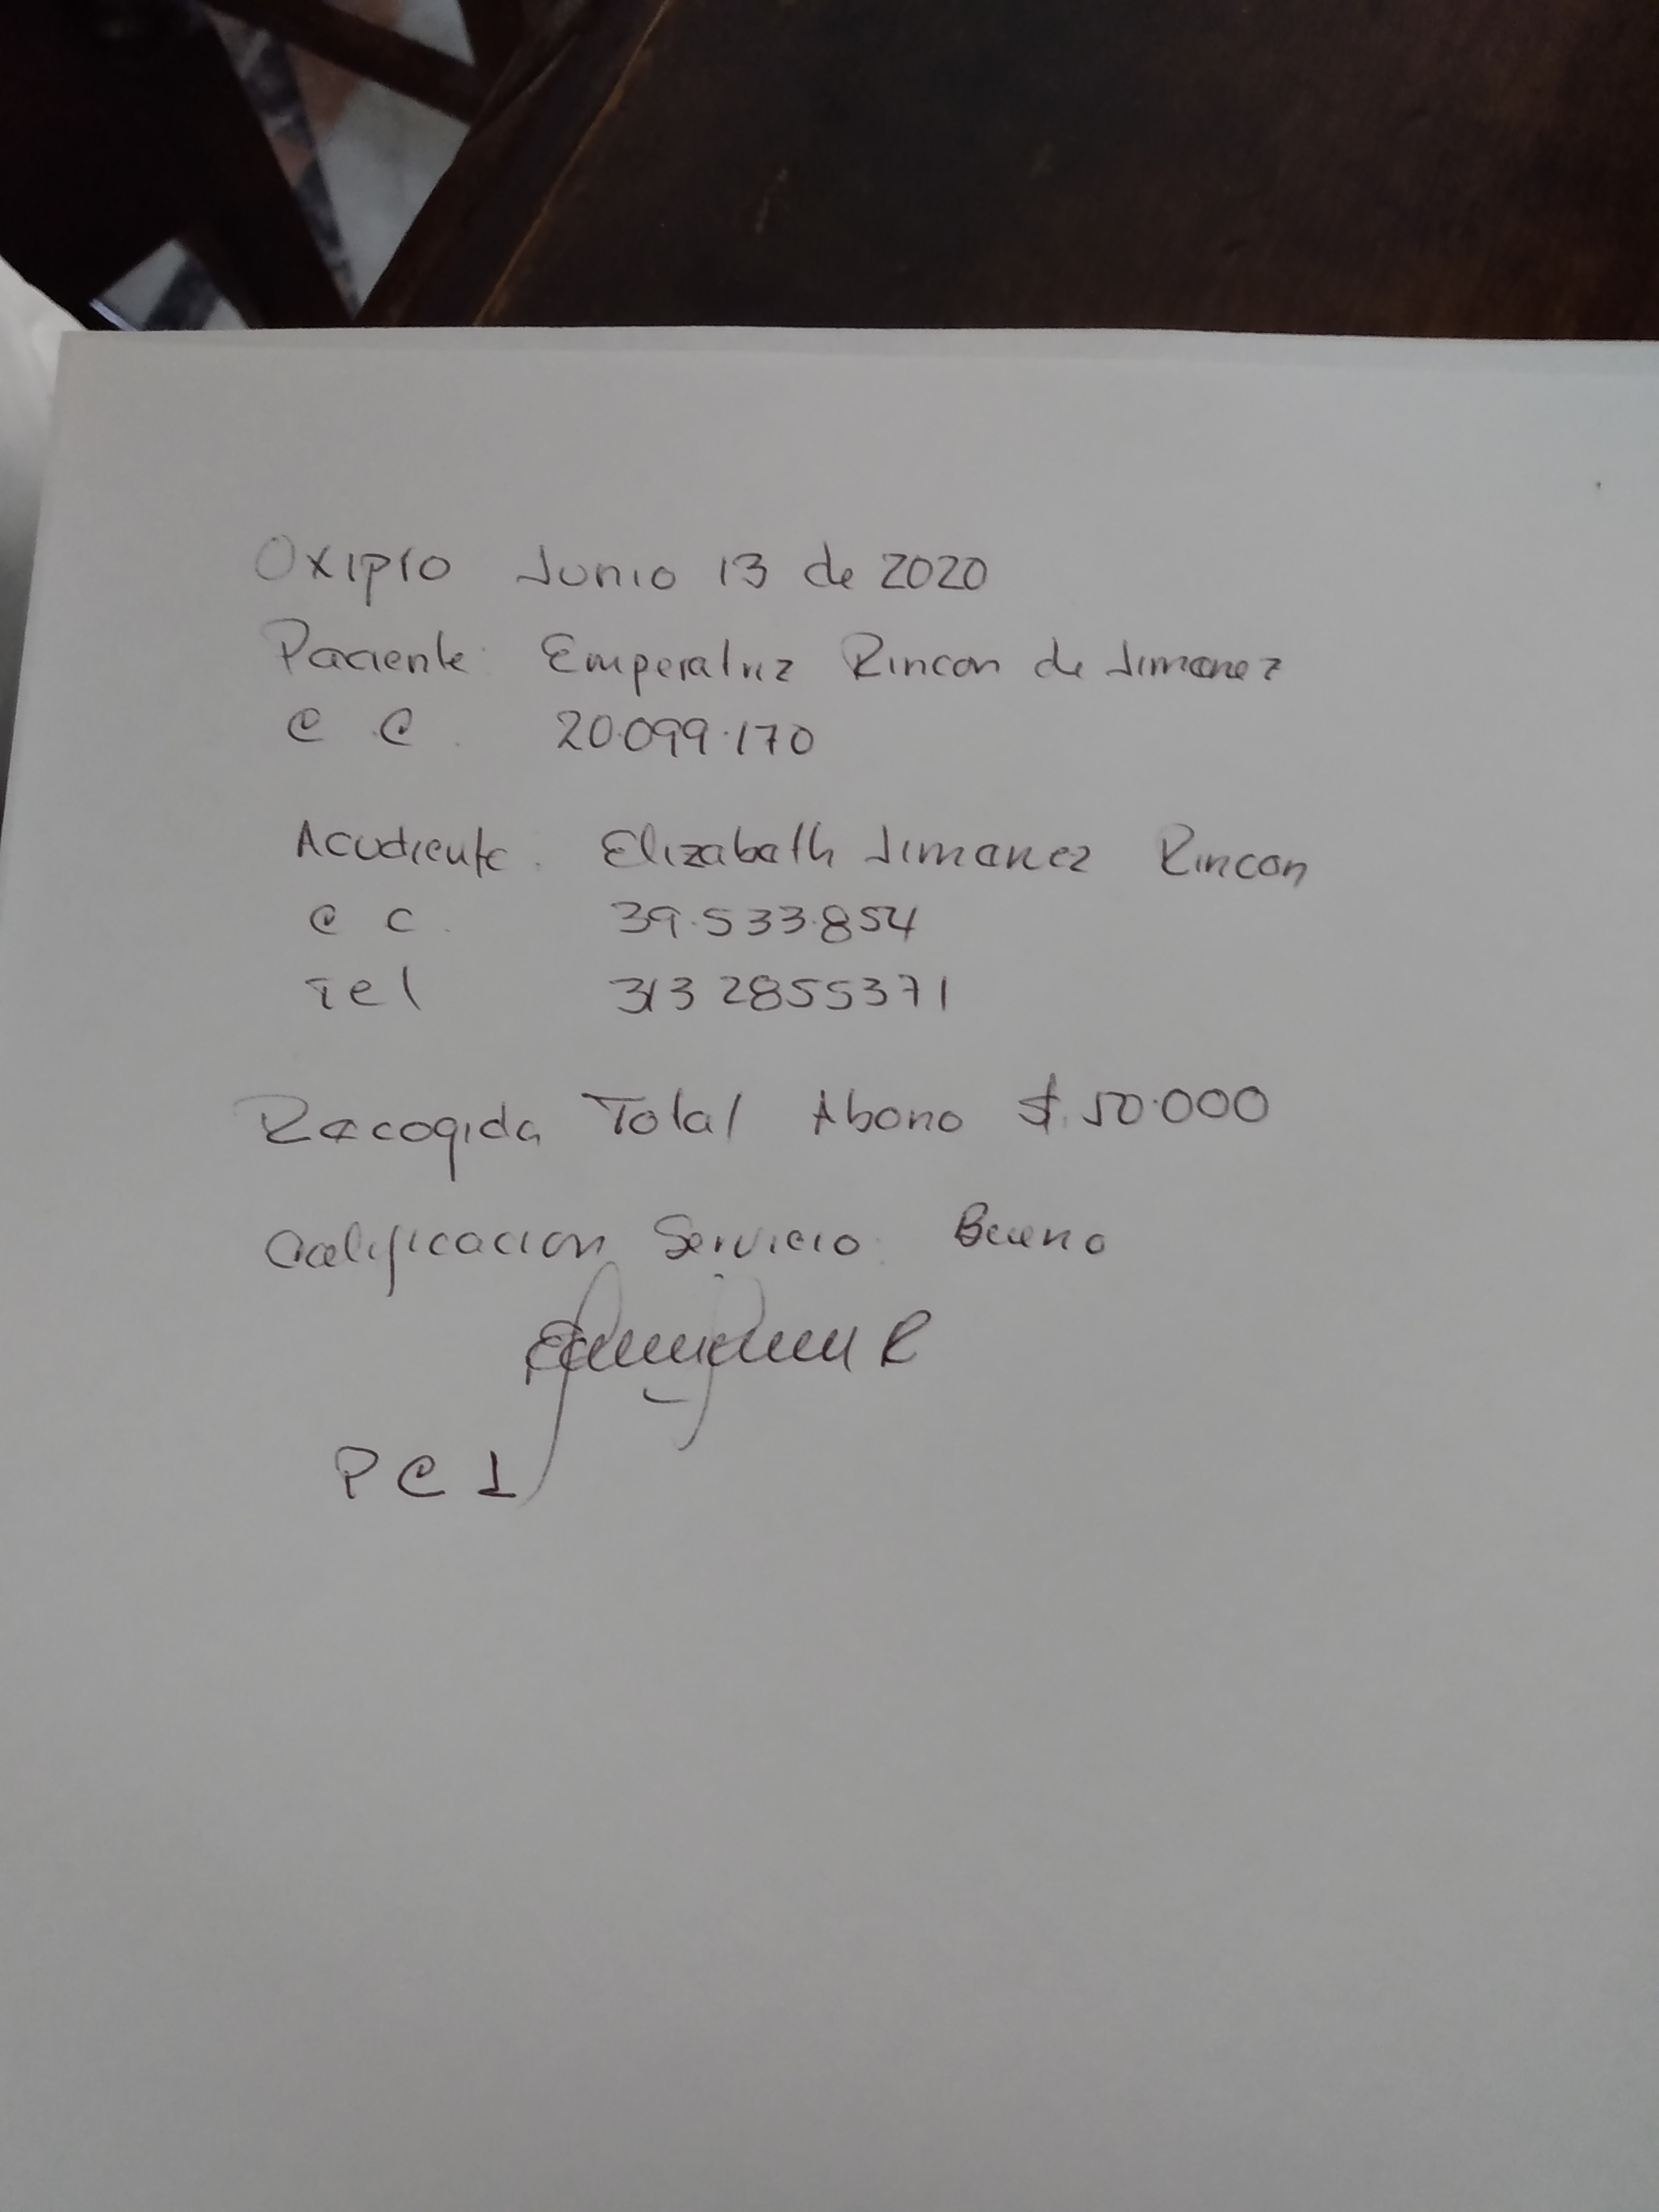 Oxipro Junio 13 de 2020
Paciente: Emperatriz Rincon de Jimenez
C.C. 20.099.170
Acudiente. Elizabeth Jimenez Rincon
C C. 39.533.854
Tel 313 2855371
Recogida Total Abono $.50.000
Calificacion Servicio: Bueno
PC1